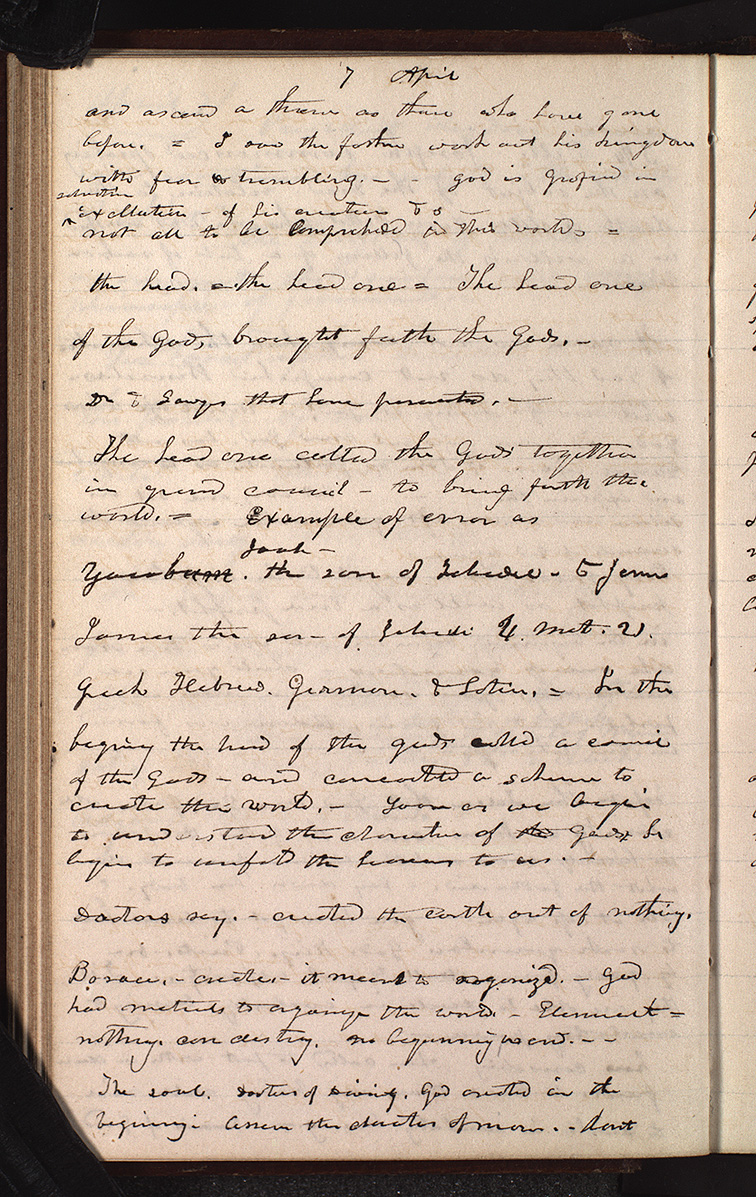 7 April
and ascend a throne as those who have gone
before. = I saw the father work out his kingdom
with fear & trembling. - - god is glorified in
salvation
exaltation - of his creatures &c -
not all to be comprehended in this world. =
the head. = the head one = The head one
of the Gods, brought forth the Gods. -
Dr & Lawyers that have persecuted. -
The head one called the Gods together
in grand council - to bring forth the
world. = Example of error as
Jacob -
the son of Zebedee -
James the son - of Zebedee 4. Mat. 21.
Greek Hebrew. German. & Latin. = In the
begining the head of the gods called a council
of the Gods - and concocted a scheme to
create the world. - Soon as we begin
to understand the character of the Gods he
begins to unfold the heavens to us. -
Doctors say. - created the earth out of nothing.
Borau. - creates - it meant to organized. - God
had materials to organize the world. - Element =
nothing can destroy. no beginning no end. - -
The soul. Doctors of Divinity. God created in the
beginning. the character of man. - dont